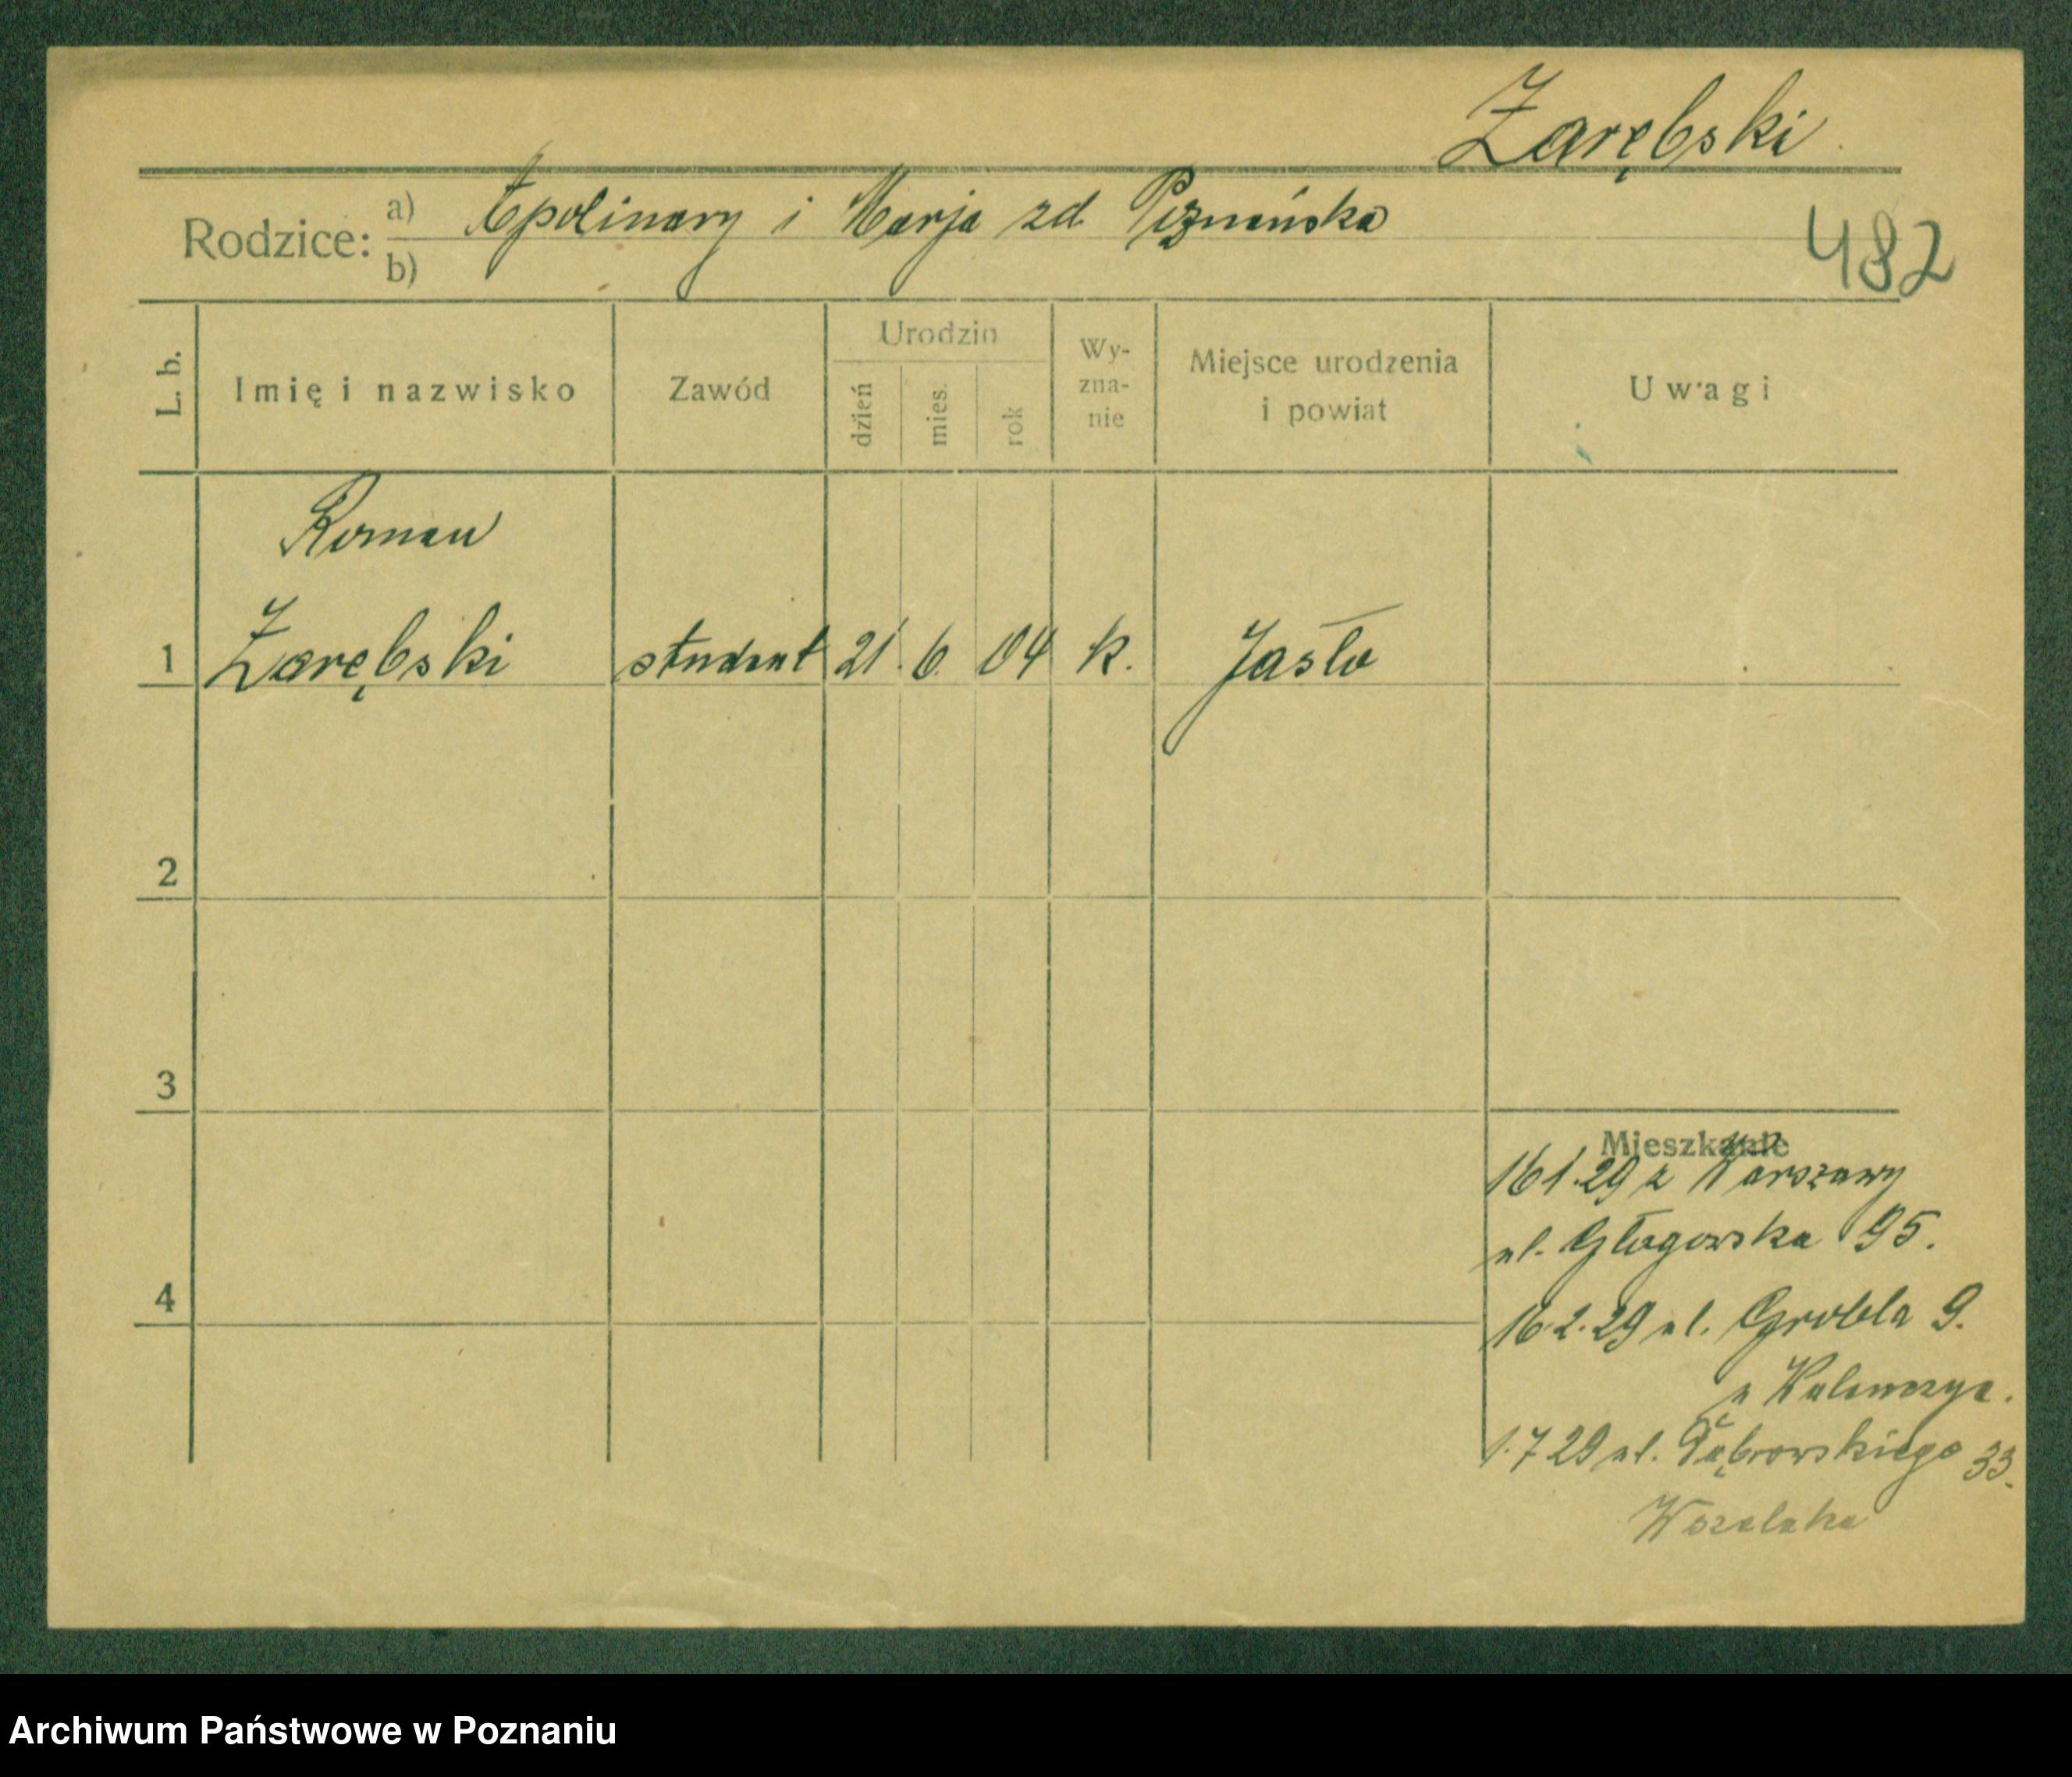 Zarębski
Rodzice: a) Apolinary i Marja zd Poznańska
b)
482
L. b. Imię i nazwisko Zawód Urodzin dzień mies. rok Wy-zna-nie Miejsce urodzenia i powiat Uwagi
Roman
1 Zarębski student 21. 6. 04 k. Jasło
2
3
4
Mieszkanie
16 1. 29 z Warszawy
ul. Głogowska 95.
16. 2. 29 ul. Grobla 9.
u
1. 7 29 ul. Dąbrowskiego 33.
Archiwum Państwowe w Poznaniu